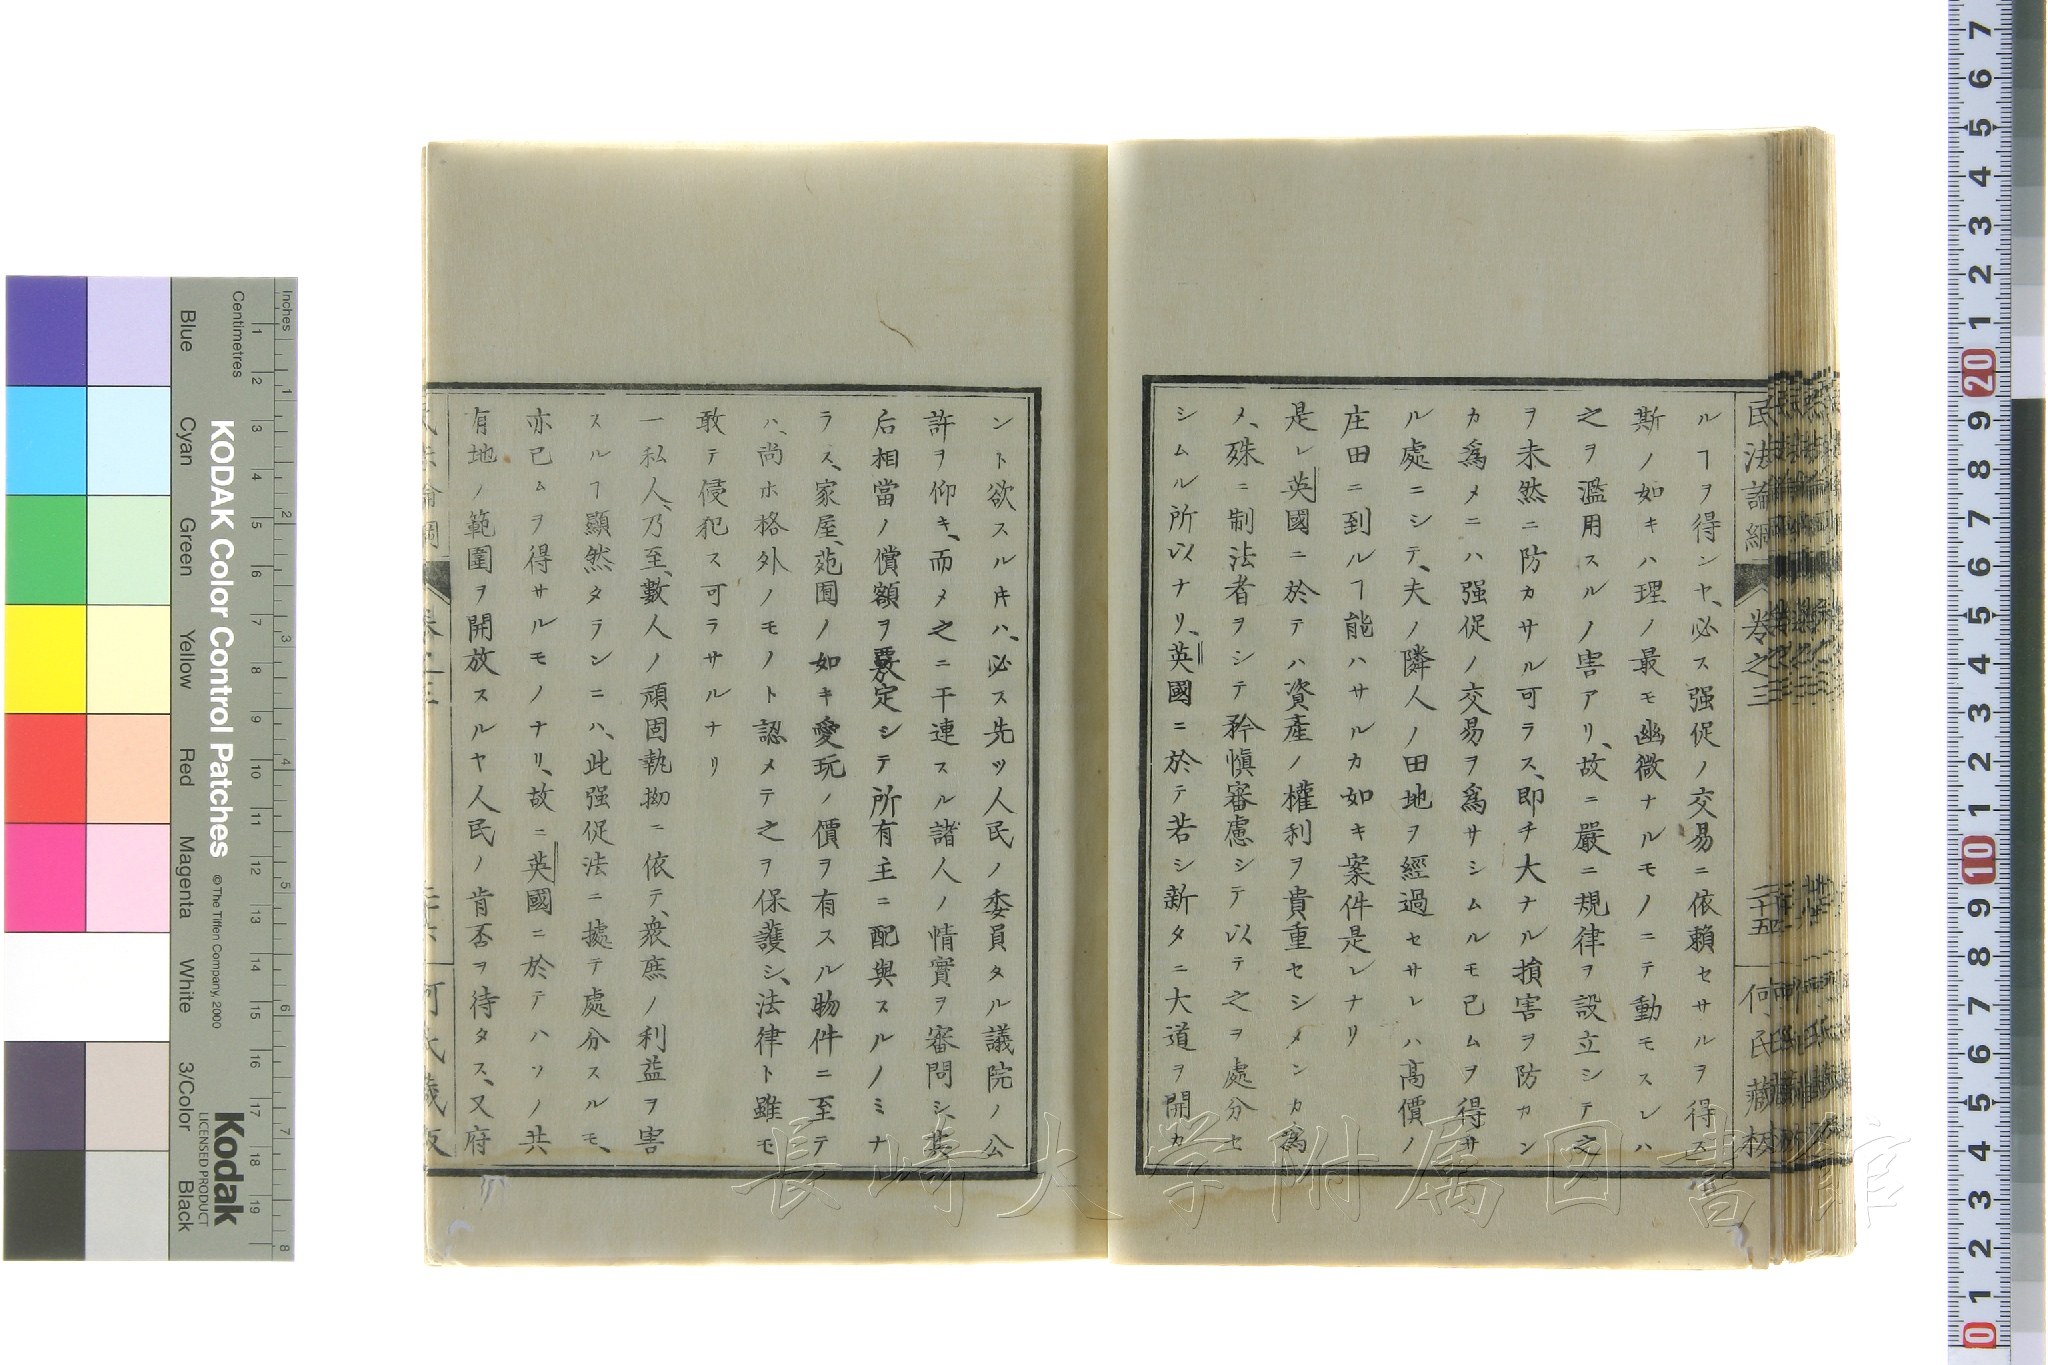 民法論綱 卷之三 二十五 何氏藏板
ルヿヲ得ンヤ、必ス强促ノ交易ニ依賴セサルヲ得ス
斯ノ如キハ理ノ最モ幽微ナルモノニテ動モスレハ
之ヲ濫用スルノ害アリ、故ニ嚴ニ規律ヲ設立シテ之
ヲ未然ニ防カサル可ラス、即チ大ナル損害ヲ防カン
カ爲メニハ强促ノ交易ヲ爲サシムルモ已ムヲ得サ
ル處ニシテ、夫ノ隣人ノ田地ヲ經過セサレハ高價ノ
庄田ニ到ルヿ能ハサルカ如キ案件是レナリ
是レ英國ニ於テハ資產ノ權利ヲ貴重セシメンカ爲
メ、殊ニ制法者ヲシテ矜愼審慮シテ以テ之ヲ處分セ
シムル所以ナリ、英國ニ於テ若シ新タニ大道ヲ開カ
ント欲スル片ハ、必ス先ツ人民ノ委員タル議院ノ公
許ヲ仰キ、而メ之ニ干連スル諸人ノ情實ヲ審問シ、其
后相當ノ償額ヲ覈定シテ所有主ニ配與スルノミナ
ラス、家屋、苑囿ノ如キ愛玩ノ價ヲ有スル物件ニ至テ
ハ、尚ホ格外ノモノト認メテ之ヲ保護シ、法律ト雖モ
敢テ侵犯ス可ラサルナリ
一私人、乃至、數人ノ頑固執拗ニ依テ、衆庶ノ利益ヲ害
スルヿ顯然タランニハ、此强促法ニ據テ處分スルモ、
亦已ムヲ得サルモノナリ、故ニ英國ニ於テハソノ共
有地ノ範圍ヲ開放スルヤ人民ノ肯否ヲ待タス、又府
KODAK Color Control Patches
© The Tiffen Company, 2000
Kodak
LICENSED PRODUCT
Inches
Centimetres
Blue
Cyan
Green
Yellow
Red
Magenta
White
3/Color
Black
長崎大学附属図書館